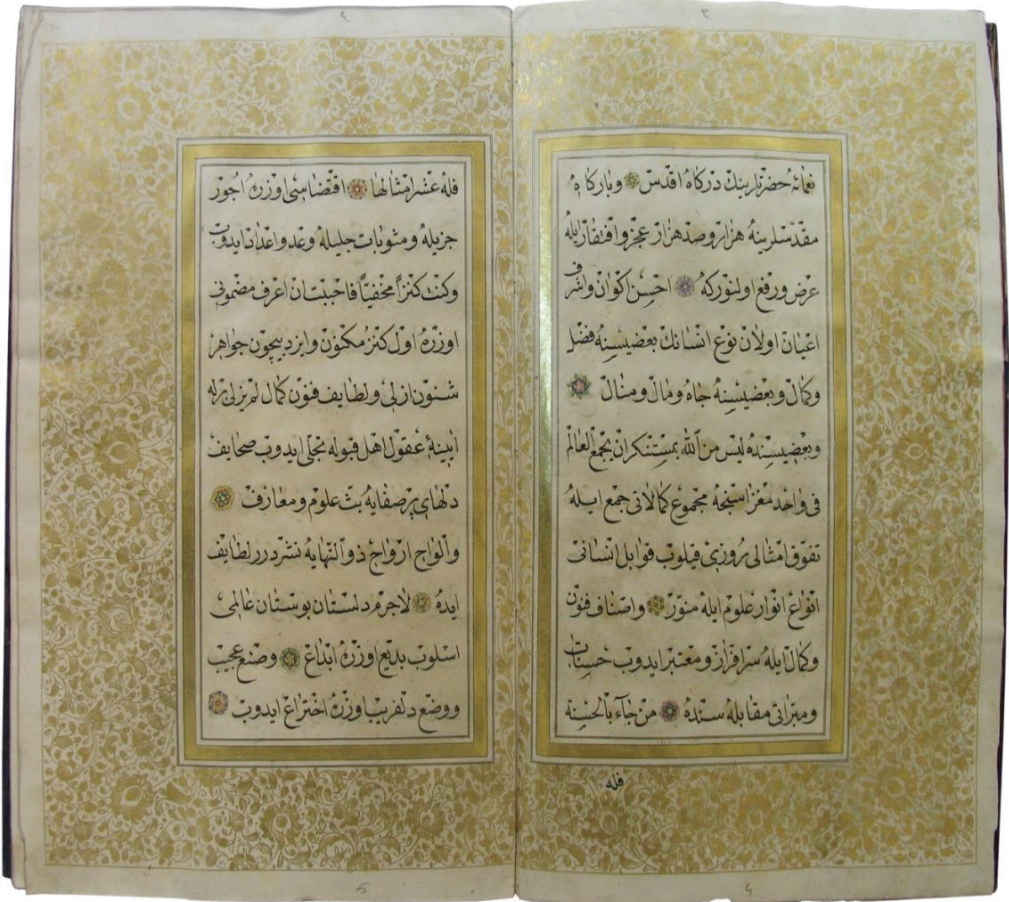 نعمائه حضرتلرينك دركاه اقدس وباركاه
مقدسلرينه هزار وصد هزار عجز وافتقار ايله
عرض ورفع اولنوركه احسن اكوان واشرف
اعيان اولان نوع انسانك بعضيسنه فضل
وكمال وبعضيسنه جاه ومال ومنال
وبعضيسنده ليس من الله بمستنكر ان يجمع العالم
فى واحد مغزاسنجه مجموع كمالاتى جمع ايله
تفوق امثالى روزى قيلوب قوابل انسانى
انواع انوار علوم ايله منور واصناف فنون
وكمال ايله سرافراز ومعتبر ايدوب حسنات
ومبراتى مقابله سنده من جآء بالحسنة
فله
فله عشر امثالها اقتضاسى اوزره اجور
جزيله ومثوبات جليله وعد واعدات ايدوب
وكنت كنزاً مخفيّاً فاحببت ان اعرف مضمونى
اوزره اول كنز مكنون وايزد بيچون جواهر
شئون ازلى ولطايف فنون كمال لم يزلى برله
ايينهٔ عقول اهل قبوله تجلى ايدوب صحايف
دلهاى پر صفايه بث علوم ومعارف
والواج ازواج ذو النهايه نثر درر لطايف
ايده لاجرم دلستان بوستان عالمى
اسلوب بديع اوزره ابداع وصنع عجيب
ووضع دلفريب اوزره اختراع ايدوب